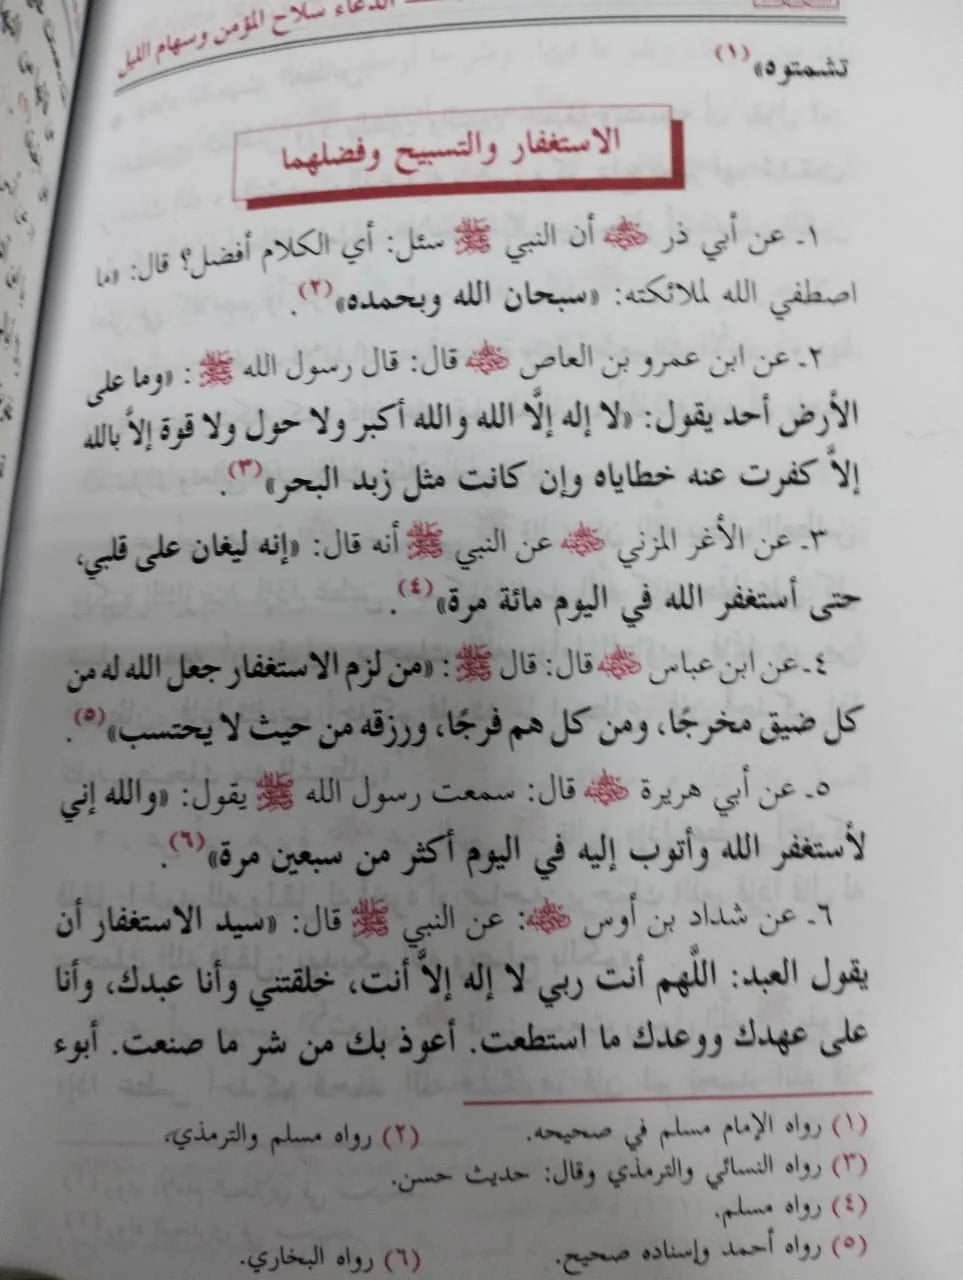 الدعاء سلاح المؤمن وسهام الليل
تشمتوه» (١)
الاستغفار والتسبيح وفضلهما
١ـ عن أبي ذر رضي الله عنه أن النبي ﷺ سئل: أي الكلام أفضل؟ قال: «ما
اصطفي الله لملائكته: «سبحان الله وبحمده»(٢).
٢ـ عن ابن عمرو بن العاص رضي الله عنه قال: قال رسول الله ﷺ: «وما على
الأرض أحد يقول: «لا إله إلَّا الله والله أكبر ولا حول ولا قوة إلاَّ بالله
إلاَّ كفرت عنه خطاياه وإن كانت مثل زبد البحر»(٣).
٣ـ عن الأغر المزني رضي الله عنه عن النبي ﷺ أنه قال: «إنه ليغان على قلبي،
حتى أستغفر الله في اليوم مائة مرة»(٤).
٤ـ عن ابن عباس رضي الله عنه قال: قال ﷺ: «من لزم الاستغفار جعل الله له من
كل ضيق مخرجًا، ومن كل هم فرجًا، ورزقه من حيث لا يحتسب»(٥).
٥ـ عن أبي هريرة رضي الله عنه قال: سمعت رسول الله ﷺ يقول: «والله إني
لأستغفر الله وأتوب إليه في اليوم أكثر من سبعين مرة»(٦).
٦ـ عن شداد بن أوس رضي الله عنه: عن النبي ﷺ قال: «سيد الاستغفار أن
يقول العبد: اللَّهم أنت ربي لا إله إلاَّ أنت، خلقتني وأنا عبدك، وأنا
على عهدك ووعدك ما استطعت. أعوذ بك من شر ما صنعت. أبوء
(١) رواه الإمام مسلم في صحيحه. (٢) رواه مسلم والترمذي.
(٣) رواه النسائي والترمذي وقال: حديث حسن.
(٤) رواه مسلم.
(٥) رواه أحمد وإسناده صحيح. (٦) رواه البخاري.